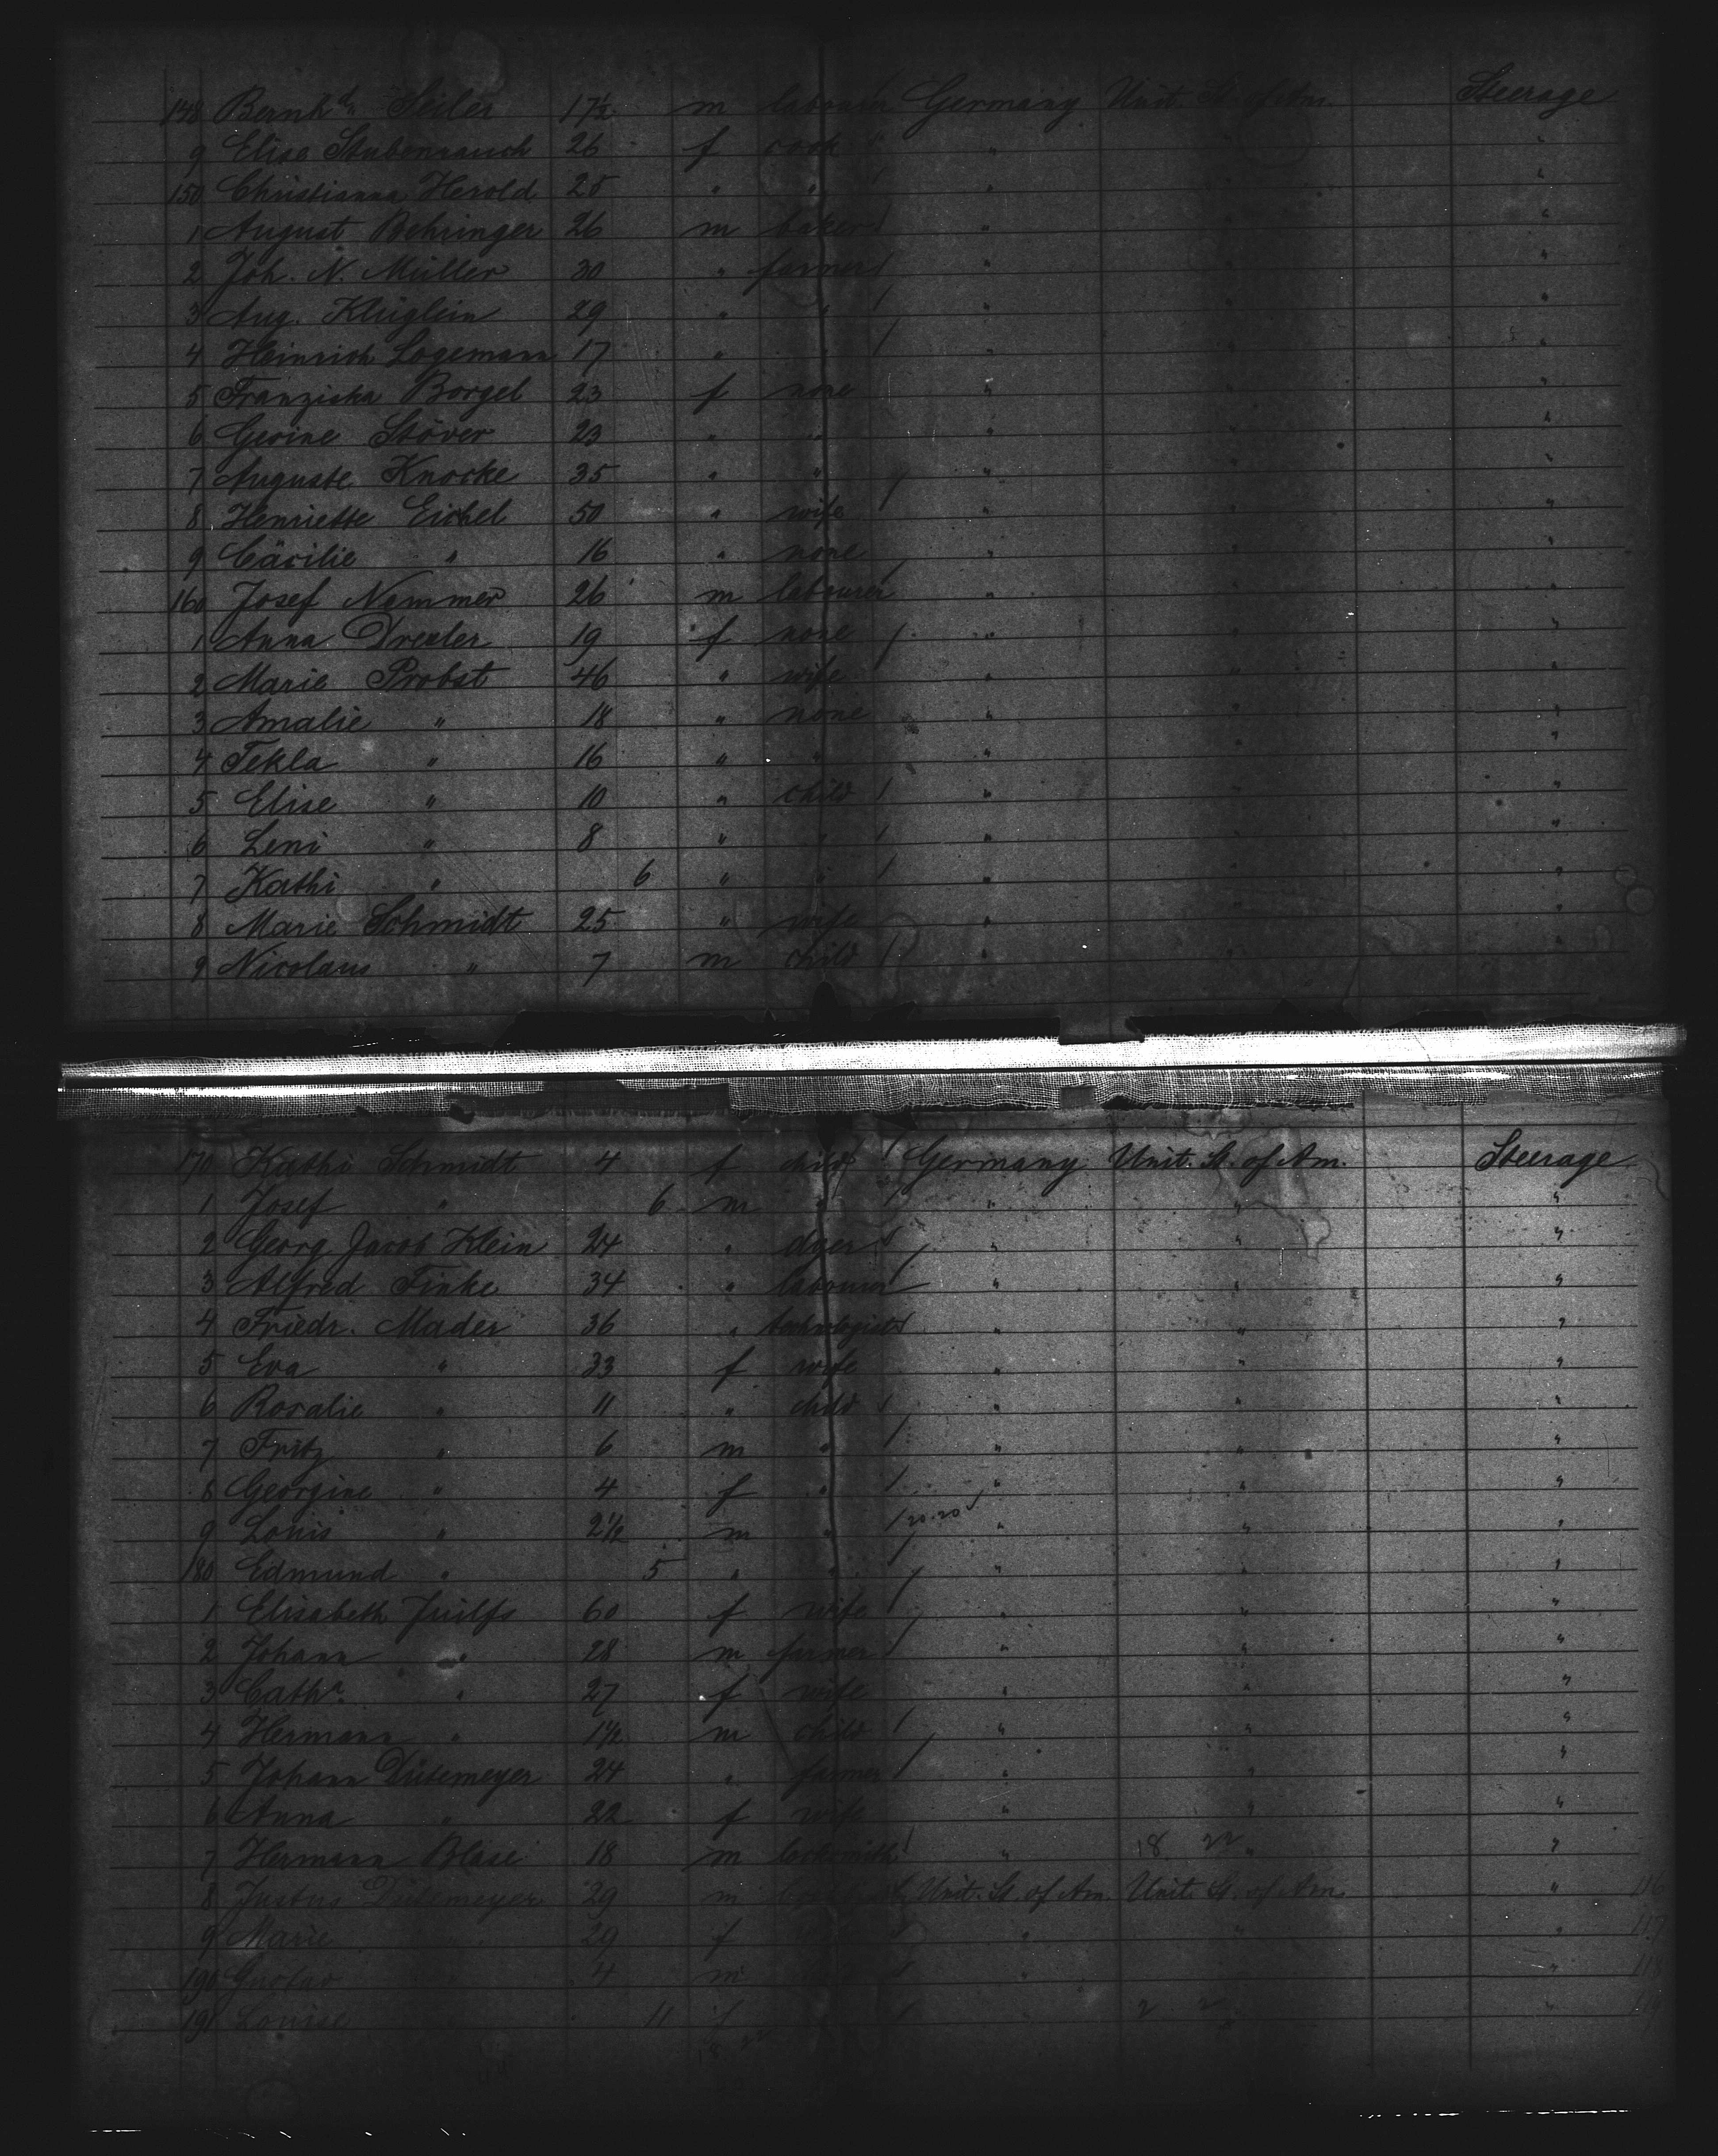 148 Bernhd. Seiler 17½ m labourer Germany Unit. St. of Am. Steerage
9 Elise Stubenrauch 26 f cook " " "
150 Christianna Herold 25 " " " " "
1 August Behringer 26 m baker " " "
2 Joh. N. Müller 30 " farmer " " "
3 Aug. Kluglein 29 " " " " "
4 Heinrich Logemann 17 " " " " "
5 Franziska Borgel 23 f none " " "
6 Gesine Stöver 23 " " " " "
7 Auguste Knocke 35 " " " " "
8 Henriette Eichel 50 " wife " " "
9 Cäcilie " 16 " none " " "
160 Josef Nemmer 26 m labourer " " "
1 Anna Drexler 19 f none " " "
2 Marie Probst 46 " wife " " "
3 Amalie " 18 " none " " "
4 Tekla " 16 " " " " "
5 Elise " 10 " child " " "
6 Leni " 8 " " " " "
7 Kathi " 6 " " " " "
8 Marie Schmidt 25 " wife " " "
9 Nicolaus " 7 m child " " "
170 Kathi Schmidt 4 f child Germany Unit. St. of Am. Steerage
1 Josef " 6 m " " " "
2 Georg Jacob Klein 24 " dyer " " "
3 Alfred Finke 34 " labourer " " "
4 Friedr. Mader 36 " technologist " " "
5 Eva " 33 f wife " " "
6 Rosalie " 11 " child " " "
7 Fritz " 6 m " " " "
8 Georgine " 4 f " " " "
9 Louis " 2½ m " 20.20 " " "
180 Edmund " 5 " " " " "
1 Elisabeth Juilfs 60 f wife " " "
2 Johann " 28 m farmer " " "
3 Cathr. " 27 f wife " " "
4 Hermann " 1½ m child " " "
5 Johann Dütemeyer 24 " farmer " " "
6 Anna " 22 f wife " " "
7 Hermann Blase 18 m locksmith " 18 22 " "
8 Justus Dütemeyer 29 m Unit. St. of Am. Unit. St. of Am. " 116
9 Marie 29 f " " " 117
190 Gustav 4 m " " " 118
191 Louise 11 f 2 2 "
18 22